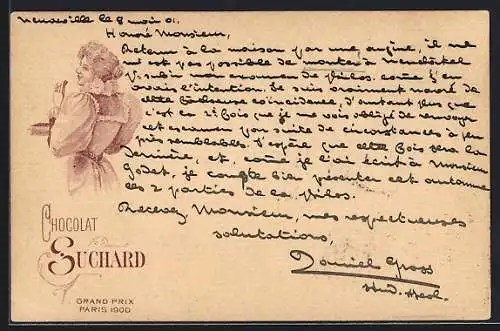 Neuveville le 8 mai 01.
Honoré Monsieur,
Retenu à la maison par une angine, il ne
m'est pas possible de monter à Neuchâtel
subir mon examen de philos. come j'en
avais l'intention. Je suis vraiment navré de
cette fâcheuse coïncidence, d'autant plus que
c'est la 2e fois que je me vois obligé de renvoyer
cet examen par suite de circonstances à peu
près semblables. J'espère que cette fois sera la
dernière, et, come je l'ai écrit à Monsieur
Godet, je compte bien présenter cet automne
les 2 parties de la philos.
Recevez Monsieur, mes respectueuses
salutations,
Daniel Gross
CHOCOLAT
SUCHARD
GRAND PRIX
PARIS 1900